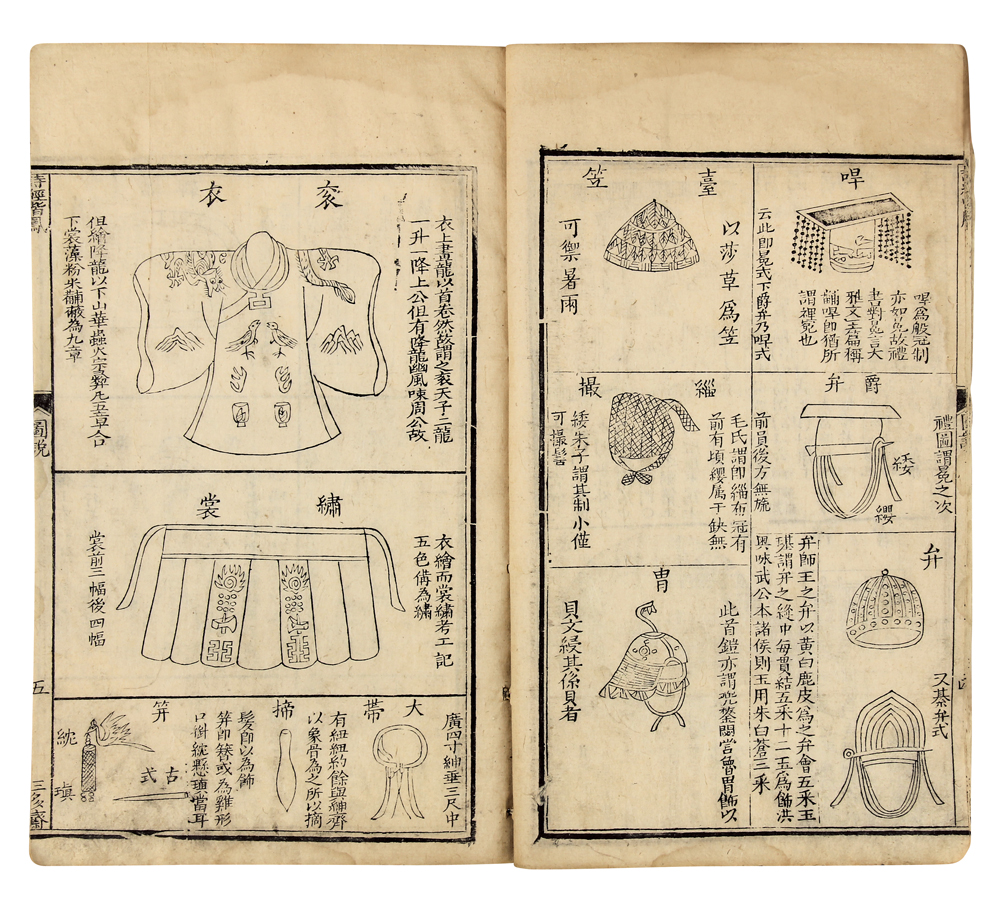 冔
冔為殷冠制
亦如冕故禮
書對冕言大
雅文王篇稱
黼冔即猶所
謂裨冕也
云此即冕式下爵弁乃冔式
臺笠
以莎草為笠
可禦暑雨
爵弁
禮圖謂冕之次
緌
纓
前員後方無旒
緇撮
毛氏謂即緇布冠有
前有頃纓属于缺無
緌朱子謂其制小僅
可撮髻
弁
又綦弁式
弁師王之弁以黃白鹿皮為之弁會五采玉
璂謂弁之縫中每貫結五采十二玉為飾洪
興咏武公本諸侯則玉用朱白蒼三采
冑
此首鎧亦謂兜鍪閟宮魯冑飾以
貝文綅其係貝者
詩經
圖說
袞衣
衣上畫龍以首卷然故謂之袞天子二龍
一升一降上公但有降龍豳風唻周公故
但繪降龍以下山華蟲火宗彝凡五章合
下裳藻粉米黼黻為九章
繡裳
衣繪而裳繡考工記
五色備為繡
裳前三幅後四幅
大帶
廣四寸紳垂三尺中
有紐紐約餘與紳齊
揥
以象骨為之所以摘
髮即以為飾
笄
笄即簪或為雞形
口衡紞懸瑱當耳
古式
紞
瑱
圖說
五
三多齋